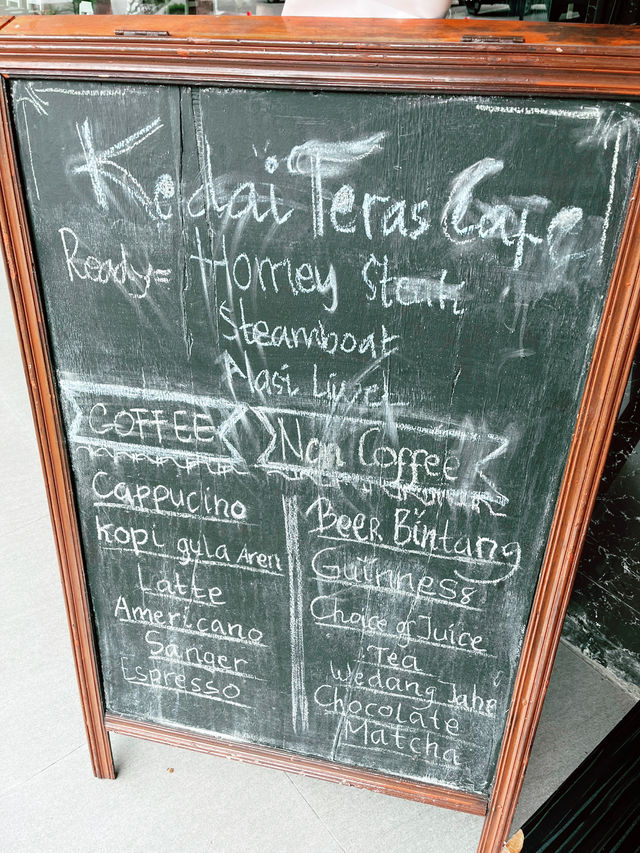 Kedai Teras Cafe
Ready= Homey Steak
Steamboat
Nasi Liwet
COFFEE
Cappucino
Kopi gula Aren
Latte
Americano
Sanger
Espresso
Non Coffee
Beer Bintang
Guinness
Choice of Juice
Tea
Wedang Jahe
Chocolate
Matcha